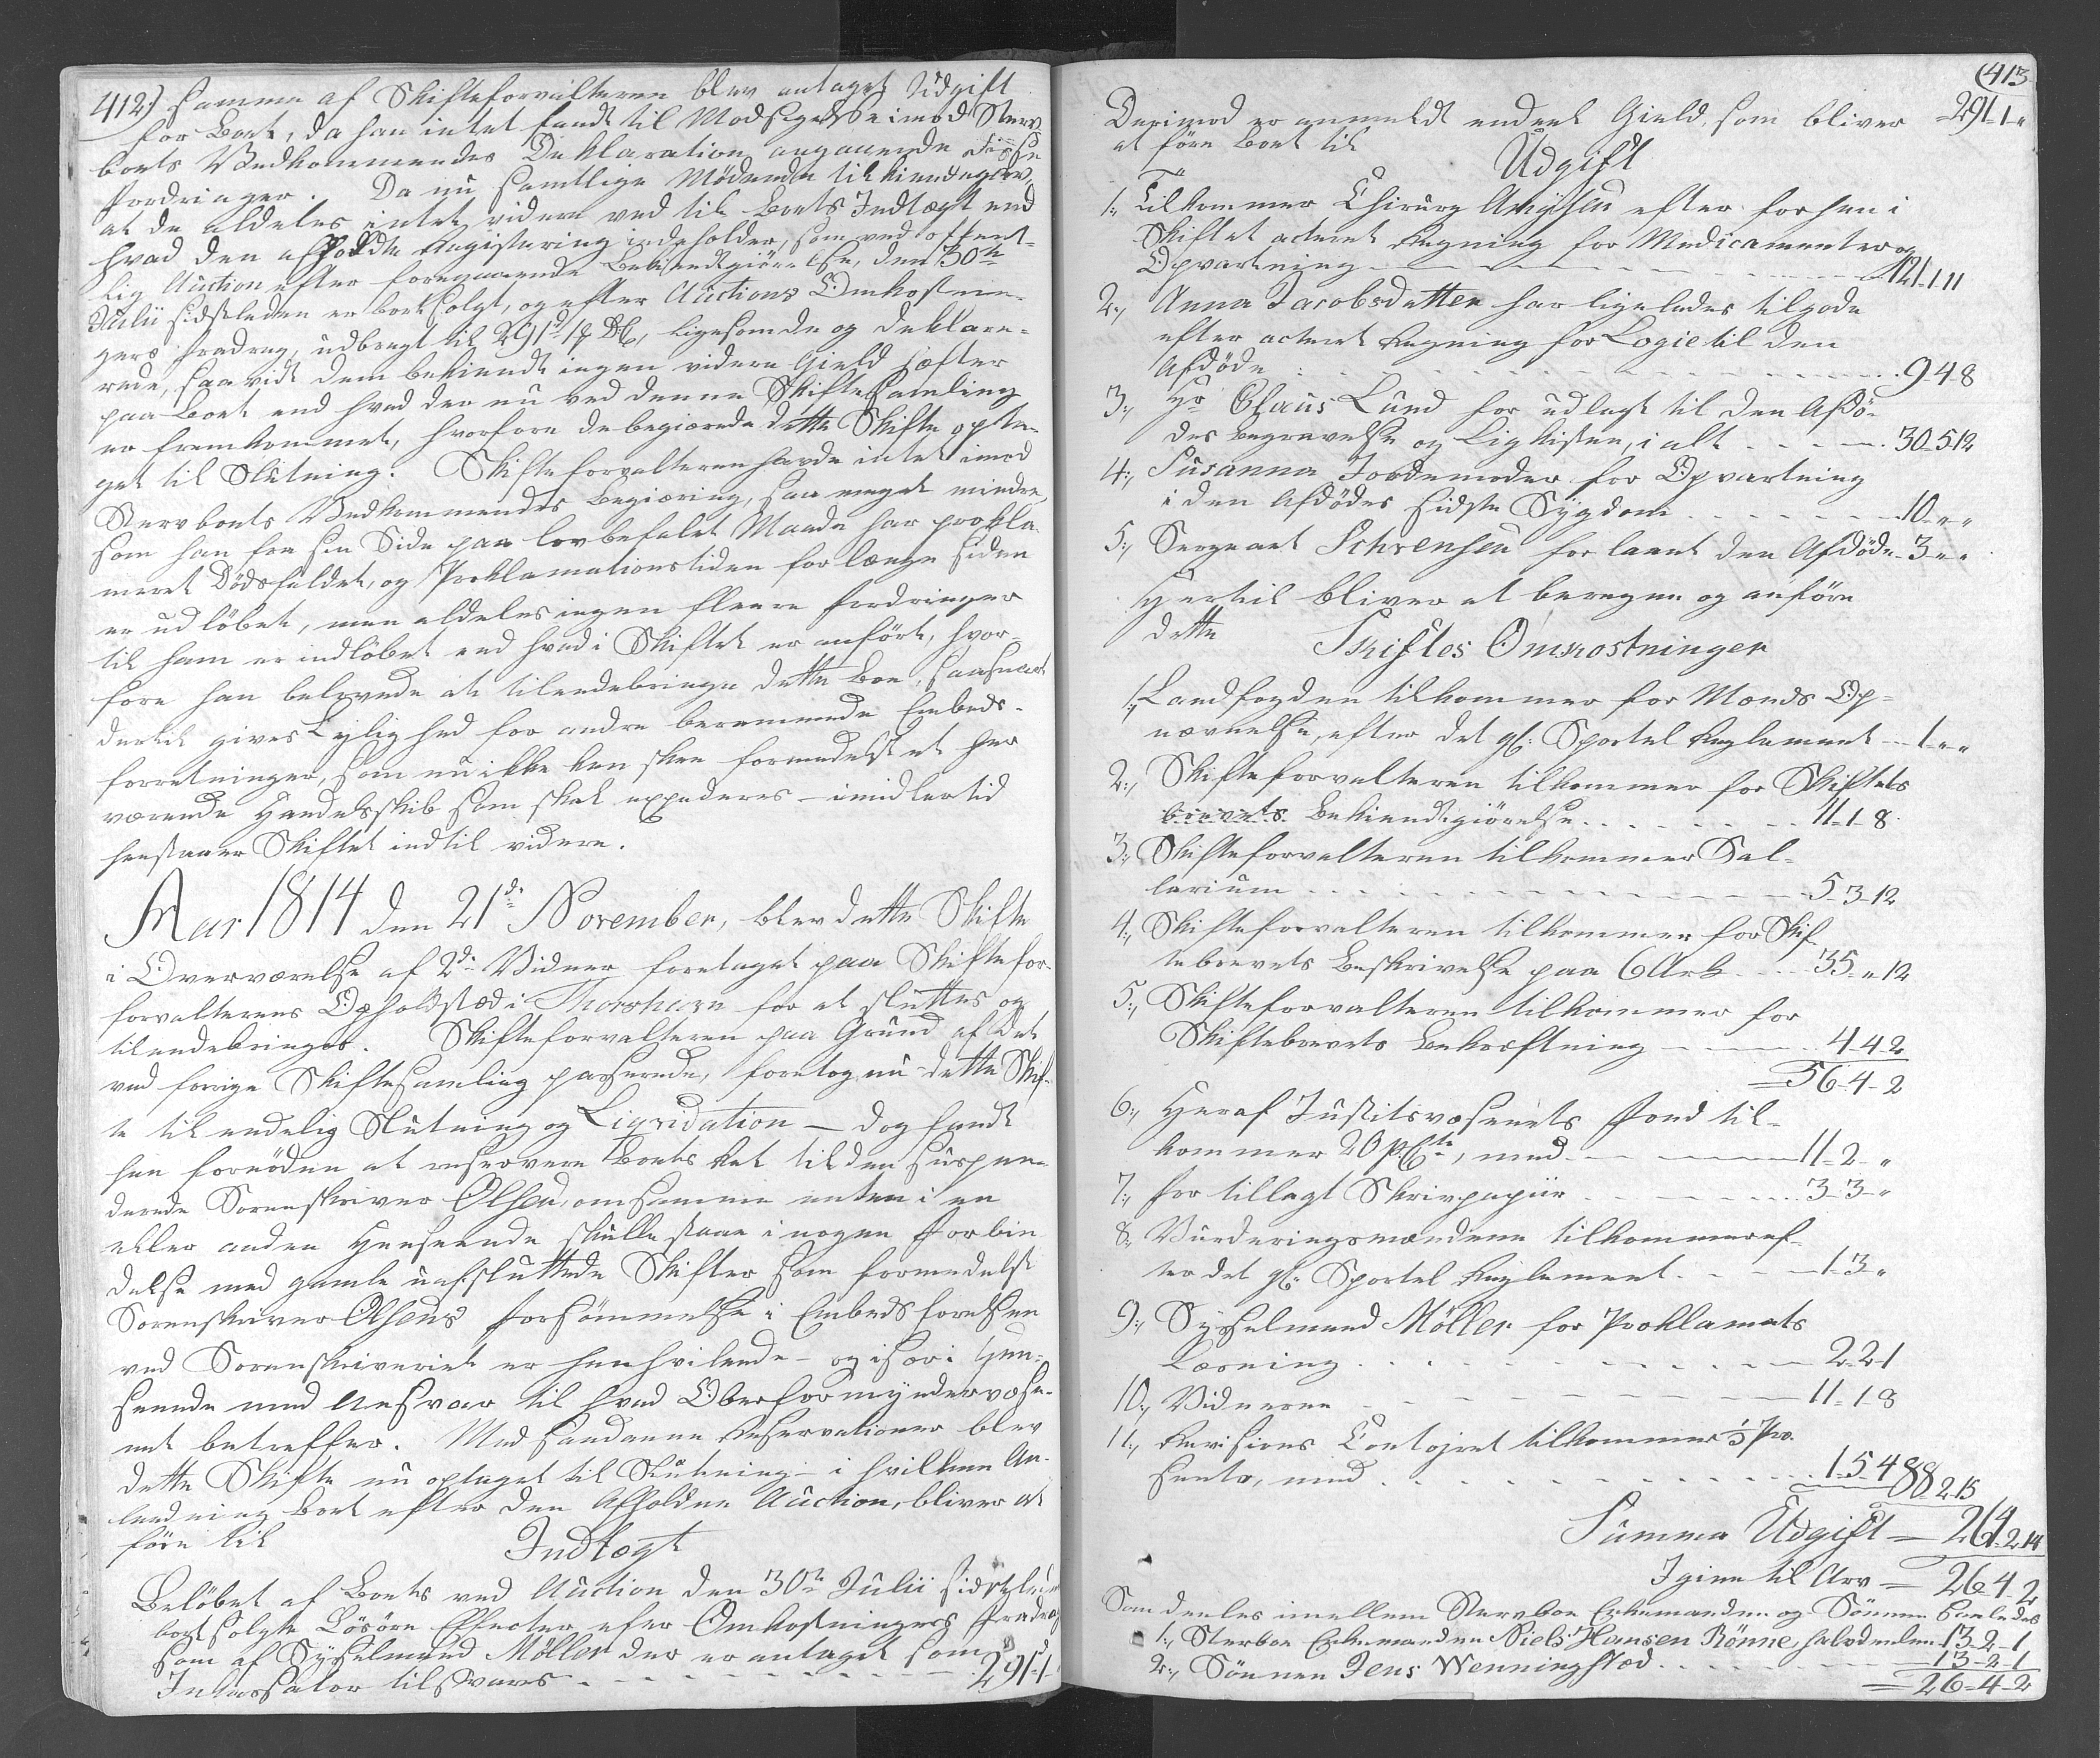 412) samme af Skifteforvalteren blev antaget Udgift
for Boet, da han intet fandt til Modsigelse imod Sterv-
boets Vedkommendes Deklaration angaaende disse
Fordringer. Da nu samtlige Mødende tilkiendegav,
at de aldeles intet videre ved til Boets Indtægt end
hvad den afholdte Registering indeholder, som ved offent-
lig Auction efter foregaaende Bekiendtgiørelse, den 30te
Julii sidstleden er bortsolgt, og efter Auctions Omkostnin-
gers Fradrag, udbragt til 291 d 1 ß, ligesom de og deklare-
rede, saavidt dem bekiendt ingen videre Gield hæfter
paa Boet end hvad der nu ved denne Skiftesamling
er fremkommet, hvorfore de begiærede dette Skifte opta-
get til Slutning. Skifteforvalteren havde intet imod
Stervboets Vedkommendes Begiæring, saa meget mindre,
som han fra sin Side paa lovbefalet Maade har prokla-
meret Dødsfaldet, og Proklamationstiden for længe siden
er udløbet, men aldeles ingen fleere Fordringer
til ham er indløbet end hvad i Skiftet er anført, hvor-
fore han belovede at tilendebringe dette Boe, saasnart
dertil gives Lejlighed for andre berammede Embeds-
forretninger, som nu ikke kan skee formedelst et her
værende Handelsskib som skal expederes – imidlertid
henstaaer Skiftet indtil videre.
Aar 1814 den 21de November, blev dette Skifte
i Overværelse af 2de Vidner foretaget paa Skiftefor-
forvalterens Opholdsted i Thorshavn for at sluttes og
tilendebringes. Skifteforvalteren paa Grund af det
ved forrige Skiftesamling passerede, foretog nu dette Skif-
te til endelig Slutning og Liqvidation – dog fandt
han fornøden at reservere Boets Ret til den suspen-
derede Sorenskriver Olsen, om samme enten i en
eller anden Henseende skulle staae i nogen Forbin
delse med gamle uafsluttede Skifter som formedelst
Sorenskriver Olsens Forsømmelse i Embedsførelsen
ved Sorenskriveriet er henhvilende – og især i Hen-
seende med Ansvar til hvad Oberformyndervæse-
net betreffer. Med saadanne Reservationer blev
dette Skifte nu optaget til Slutning – i hvilken An-
ledning Boet efter den Afholdne Auction, bliver at
føre til
Indtægt
Beløbet af Boets ved Auction den 30te Julii sidstleden
bortsolgte Løsøre Effecter efter Omkostningers Fradrag
som af Sysselmand Möller der er antaget som
Incassator tilsvares - - - 291 d 1
(413
Derimod er anmeldt endeel Gield, som bliver = 291 = 1 = "
at føre Boet til
Udgift
1:, Tilkommer Chirurg Amysen efter forhen i
Skiftet acteret Regning for Medicamenter og
Opvartning - - - 121-1-11
2:, Anna Jacobsdatter har ligeledes tilgode
efter acteret Regning for Logie til den
Afdøde - - - 9-4-8
3:, Hr Claus Lund for udlagt til den Afdø-
des Begravelse og Ligkisten, i alt - - - 30-5-12
4:, Susanna Jordemoder for Opvartning
i den Afdødes sidste Sygdom - - - 10-"-"
5:, Sergeant Schrensen for laant den Afdøde 3-"-"
Hertil bliver at beregne og anføre
dette
Skiftes Omkostninger
1:, Landfogden tilkommer for Mænds Op-
nævnelse, efter det gl: Sportel Reglement - 1-"-"
2:, Skifteforvalteren tilkommer for Skiftets
brevets Bekiendtgiørelse - - - 11-1-8
3:, Skifteforvalteren tilkommer Sal-
larium - - - 5-3-12
4:, Skifteforvalteren tilkommer for Skif-
tebrevets Beskrivelse paa 6 Ark - - - 35-"-12
5:, Skifteforvalteren tilkommer for
Skiftebrevets Bekræftning - - - 4-4-2
= 56-4-2
6:, Heraf Justitsvæsenets Fond til-
kommer 20 p Cto, med - - - 11-2-"
7:, For tillagt Skrivpapiir - - - 3-3-"
8:, Vurderingsmændene tilkommer ef-
ter det gl: Sportel Reglement - - - 1-3-"
9:, Sysselmand Möller for Proklamets
Læsning - - - 2-2-1
10:, Vidnerne - - - 11-1-8
11:, Revisions Contoiret tilkommer ½ Pro-
sento, med - - - 1-5-4 88-2-15
Summa Udgift = 264-2-14
Igien til Arv = 26-4-2
Som deeles imellem Stervboe Enkemanden og Sønnen saaledes
1:, Sterboe Enkemanden Niels Hansen Rönne, halvdeelen 13-2-1
2:, Sønnen Jens Wenningsted - - - 13-2-1
= 26-4-2